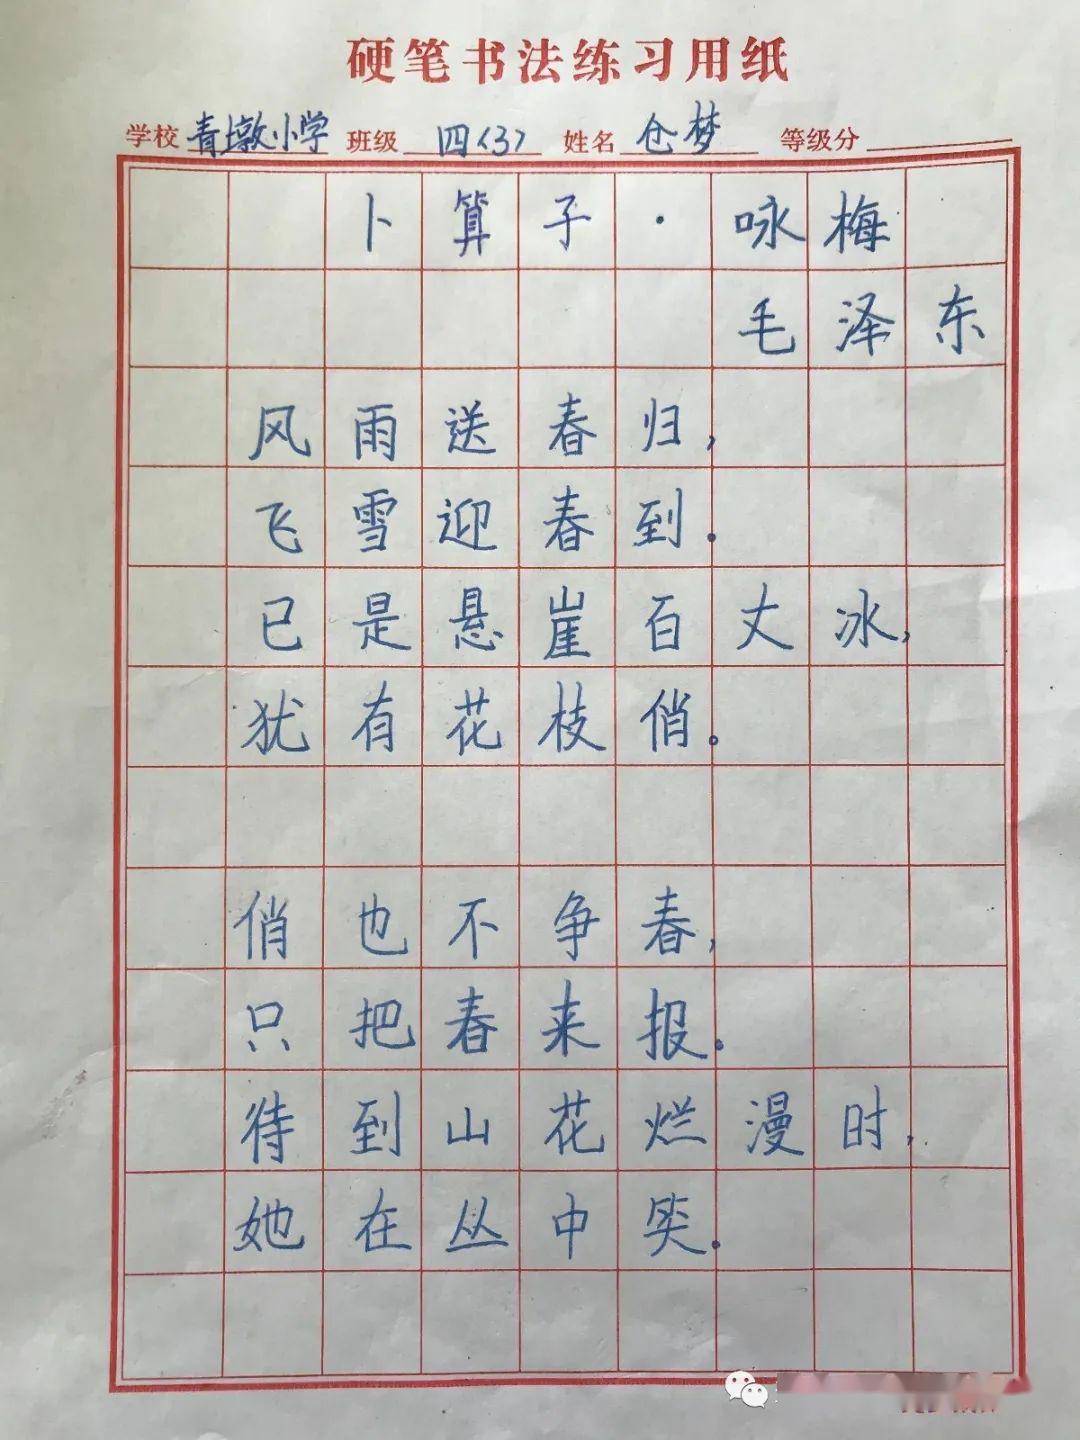 硬笔书法练习用纸
学校 青墩小学 班级 四(3) 姓名 仓梦 等级分
卜算子·咏梅
毛泽东
风雨送春归,
飞雪迎春到。
已是悬崖百丈冰,
犹有花枝俏。
俏也不争春,
只把春来报。
待到山花烂漫时,
她在丛中笑。